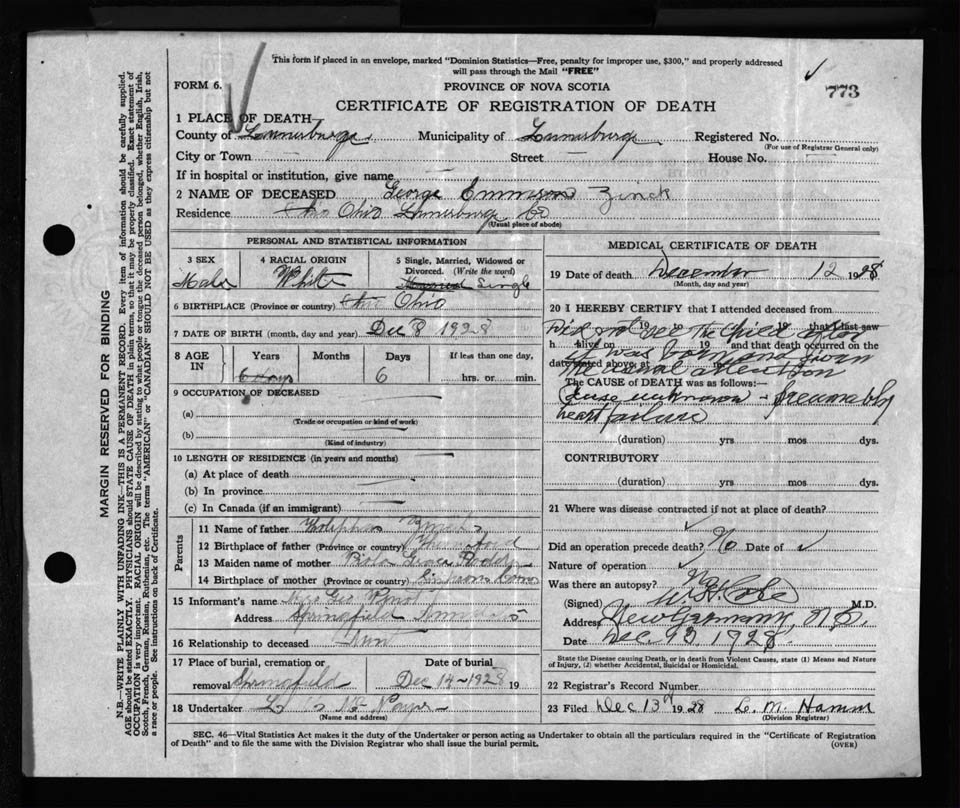 This form if placed in an envelope, marked "Dominion Statistics—Free, penalty for improper use, $300," and properly addressed
will pass through the Mail "FREE"
FORM 6.
PROVINCE OF NOVA SCOTIA
773
CERTIFICATE OF REGISTRATION OF DEATH
1 PLACE OF DEATH
County of Lunenburg Municipality of Lunenburg Registered No.
(For use of Registrar General only)
City or Town Street House No.
If in hospital or institution, give name
2 NAME OF DECEASED George Zinck
Residence Ohio Lunenburg Co
(Usual place of abode)
PERSONAL AND STATISTICAL INFORMATION
3 SEX 4 RACIAL ORIGIN 5 Single, Married, Widowed or
Divorced. (Write the word)
Male White Single
6 BIRTHPLACE (Province or country) Ohio
7 DATE OF BIRTH (month, day and year) Dec 8 1928
8 AGE IN Years Months Days If less than one day,
6 days 6 hrs. or min.
9 OCCUPATION OF DECEASED
(a)
(Trade or occupation or kind of work)
(b)
(Kind of industry)
10 LENGTH OF RESIDENCE (in years and months)
(a) At place of death
(b) In province
(c) In Canada (if an immigrant)
Parents
11 Name of father
12 Birthplace of father (Province or country)
13 Maiden name of mother
14 Birthplace of mother (Province or country)
15 Informant's name Mrs Geo
Address Springfield
16 Relationship to deceased Aunt
17 Place of burial, cremation or Date of burial
removal Springfield Dec 14-1928 19
18 Undertaker
(Name and address)
MEDICAL CERTIFICATE OF DEATH
19 Date of death December 12 1928
(Month, day and year)
20 I HEREBY CERTIFY that I attended deceased from
19 19 that I last saw
Did not see the child after
h alive on 19 and that death occurred on the
it was born and given
date stated above, at m.
the usual attention
The CAUSE of DEATH was as follows:—
Cause unknown - presumably
heart failure
(duration) yrs mos dys.
CONTRIBUTORY
(duration) yrs mos dys.
21 Where was disease contracted if not at place of death?
Did an operation precede death? No Date of
Nature of operation
Was there an autopsy? No
(Signed) Cole M.D.
Address New Germany, N.S.
Date Dec 1928
State the Disease causing Death, or in death from Violent Causes, state (1) Means and Nature
of Injury, (2) whether Accidental, Suicidal or Homicidal.
22 Registrar's Record Number
23 Filed Dec 13th 1928 L. M. Hamm
(Division Registrar)
SEC. 46—Vital Statistics Act makes it the duty of the Undertaker or person acting as Undertaker to obtain all the particulars required in the "Certificate of Registration
of Death" and to file the same with the Division Registrar who shall issue the burial permit.
(OVER)
MARGIN RESERVED FOR BINDING
N.B.—WRITE PLAINLY WITH UNFADING INK—THIS IS A PERMANENT RECORD. Every item of information should be carefully supplied.
AGE should be stated EXACTLY. PHYSICIANS should STATE CAUSE OF DEATH in plain terms, so that it may be properly classified. Exact statement of
OCCUPATION is very important. RACIAL ORIGIN will be described by stating to what people or tongue the deceased person belonged, whether English, Irish,
Scotch, French, German, Russian, Ruthenian, etc. The terms "AMERICAN" or "CANADIAN" SHOULD NOT BE USED as they express citizenship but not
a race or people. See instructions on back of Certificate.